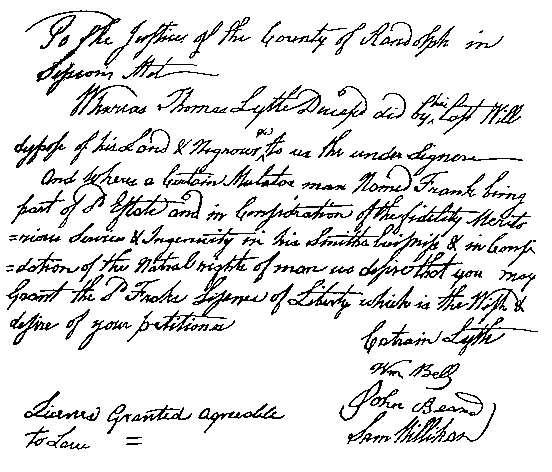 To the Justices of the County of Randolph in
Sessions Met
Whereas Thomas Lytle Deceasd did by his Last Will
dyspose of his Land & Negrows to us the under Signers
And where a Certain Mulatoe man Named Frank being
part of sd Estate and in Considration of the fidelity Merito
=rious Services & Ingenuity in his Smiths & in Consi
=dration of the Natral rights of man us desire that you may
Grant the sd Frank Lisense of Liberty which is the Wish &
desire of your petitioners
Catrain Lytle
Wm Bell
John Beard
Sam Millikan
Licence Granted agreeable
to Law =